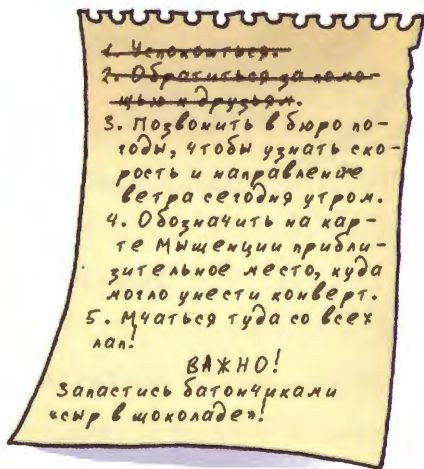 1. Успокоиться.
2. Обратиться за помо-
щью к друзьям.
3. Позвонить в бюро по-
годы, чтобы узнать ско-
рость и направление
ветра сегодня утром.
4. Обозначить на кар-
те Мышенции прибли-
зительное место, куда
могло унести конверт.
5. Мчаться туда со всех
лап!
ВАЖНО!
Запастись батончиками
«сыр в шоколаде»!